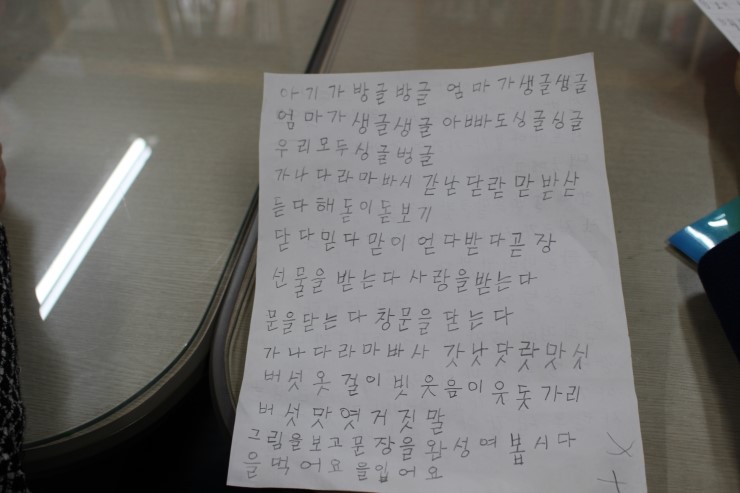 아기가 방글방글 엄마가생글생글
엄마가 생글생글 아빠도싱글싱글
우리모두싱글벙글
가나다라마바시 갇낟닫랃맏받삳
듣다해돋이돋보기
닫다믿다맏이 얻다받다곧장
선물을 받는다사랑을받는다
문을닫는다창문을 닫는다
가나다라마바사 갓낫닷랏맛싯
버섯옷 걸이빗웃음이웃돗가리
버섯맛엿거짓말
그림을보고문장을완성여봅시다
을먹어요을입어요